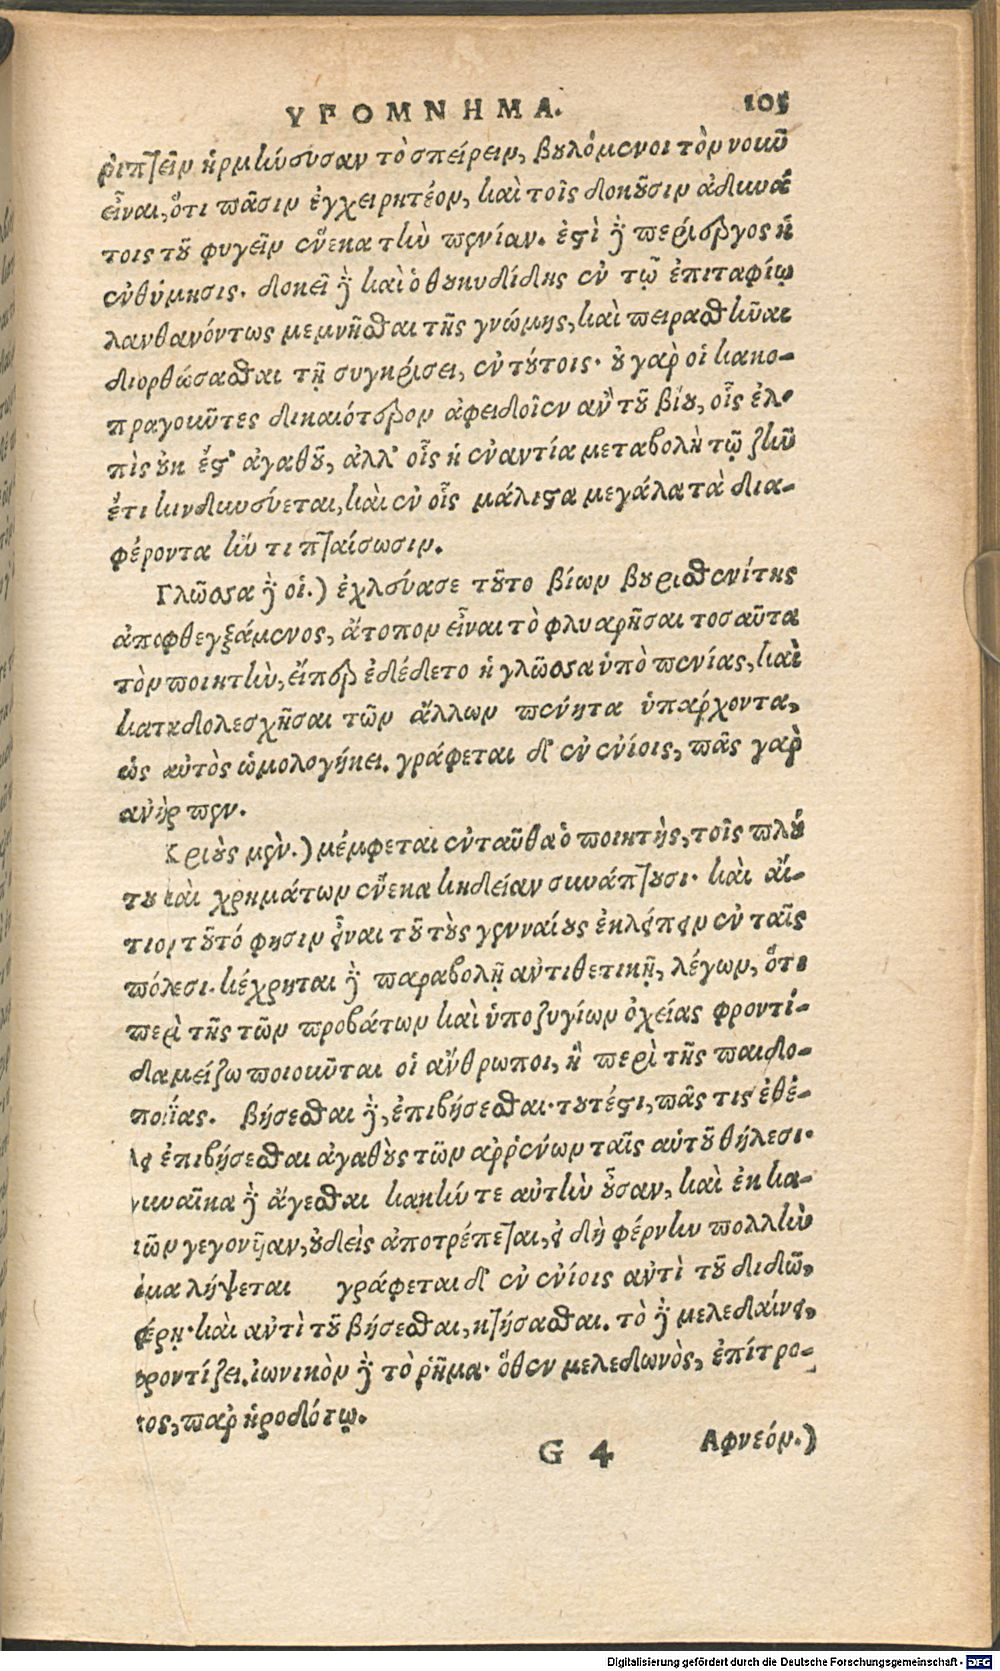 ΥΠΟΜΝΗΜΑ. 105
ῥιπτεῖν ἡρμήνευσαν τὸ σπείρειν, βουλόμενοι τὸν νοῦν
εἶναι, ὅτι πᾶσιν ἐγχειρητέον, καὶ τοῖς δοκοῦσιν ἀδυνά
τοις τοῦ φυγεῖν ἕνεκα τὴν πενίαν. ἐστὶ δὲ περίεργος ἡ
ἐνθύμησις. δοκεῖ δὲ καὶ ὁ θουκυδίδης ἐν τῷ ἐπιταφίῳ
λανθανόντως μεμνῆσθαι τῆς γνώμης, καὶ πειρασθῆναι
διορθώσασθαι τῇ συγκρίσει, ἐν τούτοις· οὐ γαρ οἱ κακο-
πραγοῦντες δικαιότερον ἀφειδοῖεν ἂν τοῦ βίου, οἷς ἐλ-
πὶς οὐκ ἔστ' ἀγαθοῦ, ἀλλ' οἷς ἡ ἐναντία μεταβολὴ τῷ ζῆν
ἔτι κινδυνεύεται, καὶ ἐν οἷς μάλιστα μεγάλα τὰ δια-
φέροντα ἤν τι πταίσωσιν.
Γλῶσσα δὲ οἱ.) ἐχλεύασε τοῦτο βίων βορισθενίτης
ἀποφθεγξάμενος, ἄτοπον εἶναι τὸ φλυαρῆσαι τοσαῦτα
τὸν ποιητὴν, εἴπερ ἐδέδετο ἡ γλῶσσα ὑπὸ πενίας, καὶ
κατηδολεσχῆσαι τῶν ἄλλων πένητα ὑπάρχοντα,
ὡς αὐτὸς ὡμολογήκει. γράφεται δ' ἐν ἐνίοις, πᾶς γαρ
ανὴρ πεν.
Κριοὺς μὲν.) μέμφεται ἐνταῦθα ὁ ποιητὴς, τοῖς πλού
του καὶ χρημάτων ἕνεκα κηδείαν συνάπτουσι· καὶ αἴ-
τιον τοῦτό φησιν εἶναι τοῦ τοὺς γενναίους ἐκλείπειν ἐν ταῖς
πόλεσι. κέχρηται δὲ παραβολῇ αντιθετικῇ, λέγων, ὅτι
περὶ τῆς τῶν προβάτων καὶ ὑποζυγίων ὀχείας φροντί-
δα μείζω ποιοῦνται οἱ ἄνθρωποι, ἢ περὶ τῆς παιδο-
ποιΐας. βήσεσθαι δὲ, ἐπιβήσεσθαι· τουτέστι, πᾶς τις ἐθέ-
λει ἐπιβήσεσθαι αγαθοὺς τῶν αρῥένων ταῖς αὑτοῦ θήλεσι·
γυναῖκα δὲ ἄγεσθαι κακήν τε αὐτὴν οὖσαν, καὶ ἐκ κα-
κῶν γεγονῆαν, οὐδεὶς ἀποτρέπεται, εἰ δὴ φέρνην πολλὴν
ἅμα λήψεται γράφεται δ' ἐν ἐνίοις αντὶ τοῦ διδῶ,
φέρῃ· καὶ αντὶ τοῦ βήσεσθαι, κτήσασθαι. τὸ δὲ μελεδαίνει,
φροντίζει. ἰωνικὸν δὲ τὸ ῥῆμα· ὅθεν μελεδωνὸς, ἐπίτρο-
πος, παρ ἡροδότῳ.
G 4 Αφνεόν.)
Digitalisierung gefördert durch die Deutsche Forschungsgemeinschaft - DFG